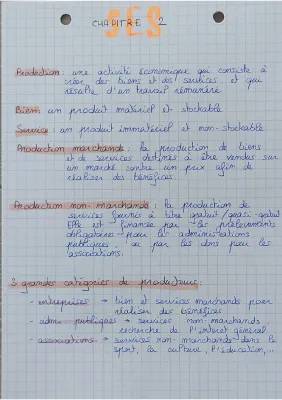 SES
CHAPITRE 2
Production : une activité économique qui consiste à
créer des biens et des services et qui
résulte d'un travail rémunéré
Biem: un produit matériel et stockable
Service : un produit immatériel et non-stockable
Production marchande : la production de biens
et de services destinés à être vendus sur
un marché contre un prix afin de
réaliser des bénéfices.
Production non-marchande : la production de
services fournis à titre gratuit/quasi-gratuit
Elle est financée par les prélèvements
obligatoires pour les administrations
publiques ou par les dons pour les
associations.
3 grandes catégories de producteurs:
- entreprises → bien et services marchands pour
réaliser des bénéfices
- adm. publiques → services non-marchands
recherche de l'intérêt général
- associations → services non-marchands dans le
sport, la culture, l'éducation,...